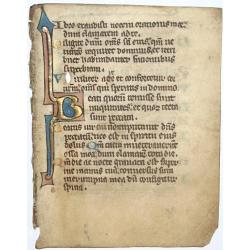 exaudisti vocem orationis mee
dum clamarem ad te.
iligite dnm oms sci eius qm ve
requiret dominus et retri
buet habundanter facientibus
superbiam.
iriliter agite et confortetur cor
omns qui speratis in domino
eati quorum remisse sunt
iniquitates et quorum tecta
sunt peccata.
eatus vir cui non imputavit dns
peccatum nec est in spiritu eius
dolus Qm tacui inveteraverunt
ossa mea dum clamarem tota die.
m die ac nocte gravata est su
per me manus tua conversus sum
in erumpna mea dum configitur
spina.